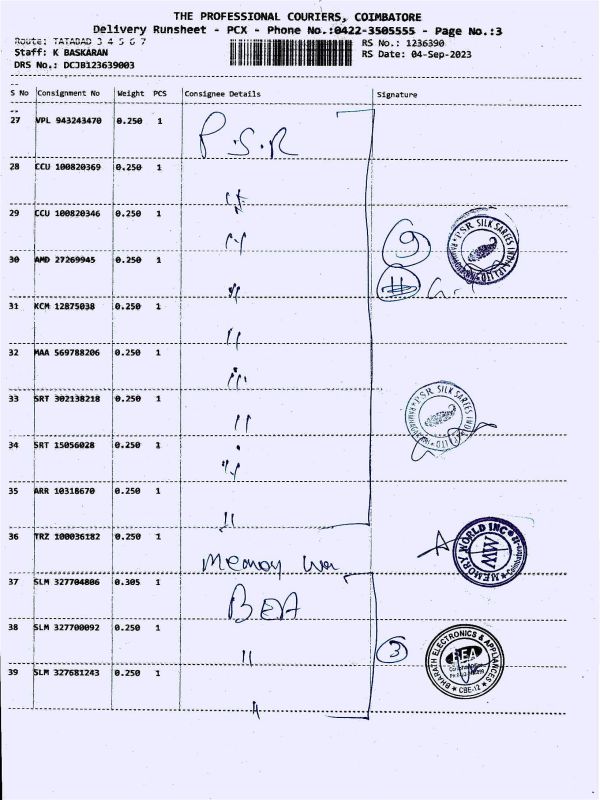 THE PROFESSIONAL COURIERS, COIMBATORE
Delivery Runsheet - PCX - Phone No.:0422-3505555 - Page No.:3
Route: TATABAD 3 4 5 6 7
RS No.: 1236390
Staff: K BASKARAN
RS Date: 04-Sep-2023
DRS No.: DCJB123639003
S No Consignment No Weight PCS Consignee Details Signature
27 VPL 943243470 0.250 1 P.S.R
28 CCU 100820369 0.250 1 〃
29 CCU 100820346 0.250 1 〃
9
P.S.R. SILK SAREES INDIA (P) LTD
30 AMD 27269945 0.250 1 〃
31 KCM 12875038 0.250 1 〃
32 MAA 569788206 0.250 1 〃
33 SRT 302138218 0.250 1 〃
P.S.R. SILK SAREES INDIA (P) LTD
34 SRT 15056028 0.250 1 〃
35 ARR 10318670 0.250 1 〃
36 TRZ 100036182 0.250 1 Memory Wor
MEMORY WORLD INC
MW
Coimbatore
37 SLM 327704806 0.305 1 BEA
38 SLM 327700092 0.250 1 〃
3
BHARATH ELECTRONICS & APPLIANCES
BEA
CBE-12
39 SLM 327681243 0.250 1 〃